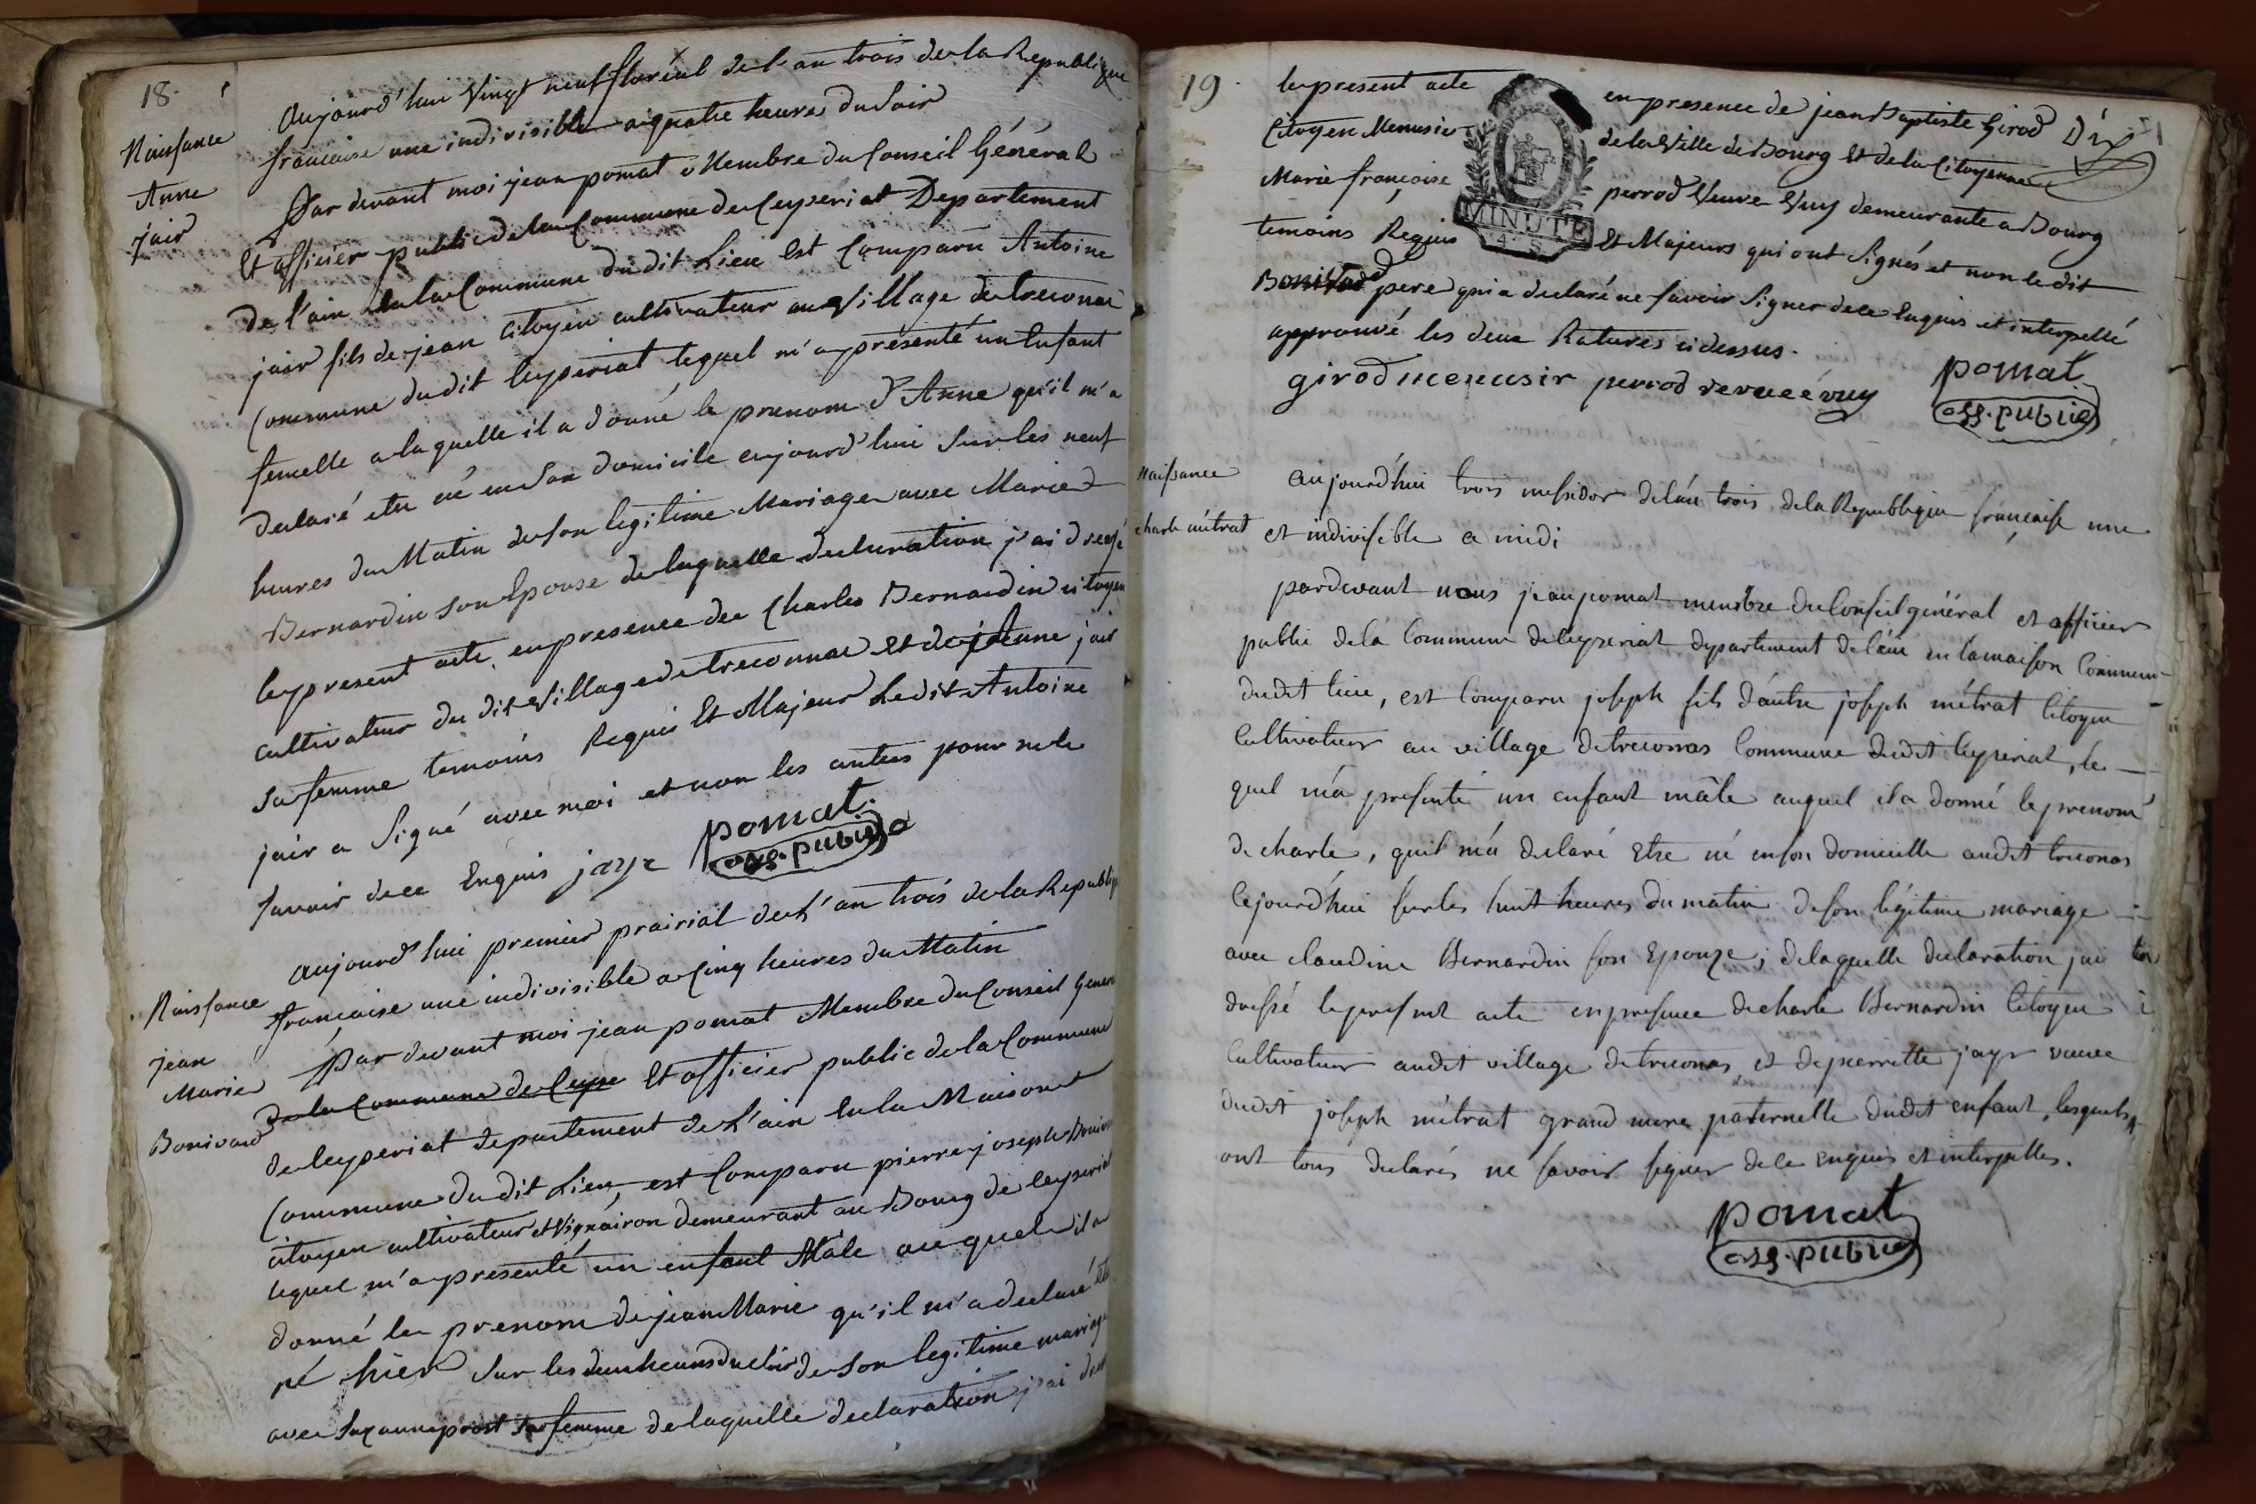 18.
Naissance
Anne
jair
Aujourd'hui Vingt neuf floréal de l'an trois de la Republique
française une indivisible a quatre heures du soir
Par devant moi jean pomat Membre du Conseil Général
Et officier public de la Commune de Ceyseriat Departement
De l'ain en la Commune du dit Lieu Est Comparu Antoine
jair fils de jean Citoyen cultivateur au Village de treconai
Commune du dit Ceyseriat lequel m'a présenté un Enfant
femelle a laquelle il a donné le prenom d'Anne qu'il m'a
declaré etre né en son domicile aujourd'hui sur les neuf
heures du Matin de son legitime Mariage avec Marie
Bernardin son Epouse de laquelle declaration j'ai dressé
le present acte, en presence de Charles Bernardin citoyen
cultivateur du dit Village de treconnas et de Anne jair
sa femme temoins Requis Et Majeur Ledit Antoine
jair a Signé avec moi et non les autres pour ne le
savoir de ce Enquis jaye pomat
off. public
Naissance
jean
Marie
Bonivard
aujourd'hui premier prairial de L'an trois de la Republique
française une indivisible a Cinq heures du Matin
Par devant moi jean pomat Membre du Conseil General
de la Commune de Ceyse Et officier public de la Commune
de Ceyseriat departement de L'ain En la Maison
Commune du dit Lieu, est Comparu pierre joseph
citoyen cultivateur et Vigneron demeurant au Bourg de Ceyseriat
lequel m'a presenté un enfant Mâle auquel il a
donné le prenom de jean Marie qu'il m'a declaré etre
né hier sur les deux heures du soir de son legitime mariage
avec Suzanne prost sa femme de laquelle declaration j'ai
19.
le present acte en presence de jean Baptiste Girod
Citoyen Menusier de la Ville de Bourg Et de la Citoyenne
Marie françoise perrod Veuve Vuy demeurante a Bourg
temoins Requis Et Majeurs qui ont Signés et non le dit
Bonivard pere qui a declaré ne savoir Signer de ce Enquis et interpellé
approuvé les deux Ratures ci dessus.
MINUTE
girod menusir perrod veuve vuy pomat
off. public
Naissance
charle métrat
aujourd'hui trois messidor de l'an trois de la Republique française une
et indivisible a midi
pardevant nous jean pomat membre du Conseil général et officier
public de la Commune de Ceyzeriat departement de l'ain en la maison Commune
dudit lieu, est Comparu joseph fils d'autre joseph métrat Citoyen
Cultivateur au village de treconas Commune dudit Ceyzeriat, le
quel m'a presenté un enfant mâle auquel il a donné le prenom
de charle, qu'il m'a declaré Etre né en son domicille audit treconas
Cejourd'hui sur les huit heures du matin de son légitime mariage
avec claudine Bernardin son Epouze; de laquelle declaration j'ai
dressé le present acte en presence de charle Bernardin Citoyen
Cultivateur audit village de treconas, et de pierrette jayr veuve
dudit joseph métrat grand mere paternelle dudit enfant, lesquels
ont tous declarés ne savoir signer de ce Enquis et interpellés.
pomat
off. public